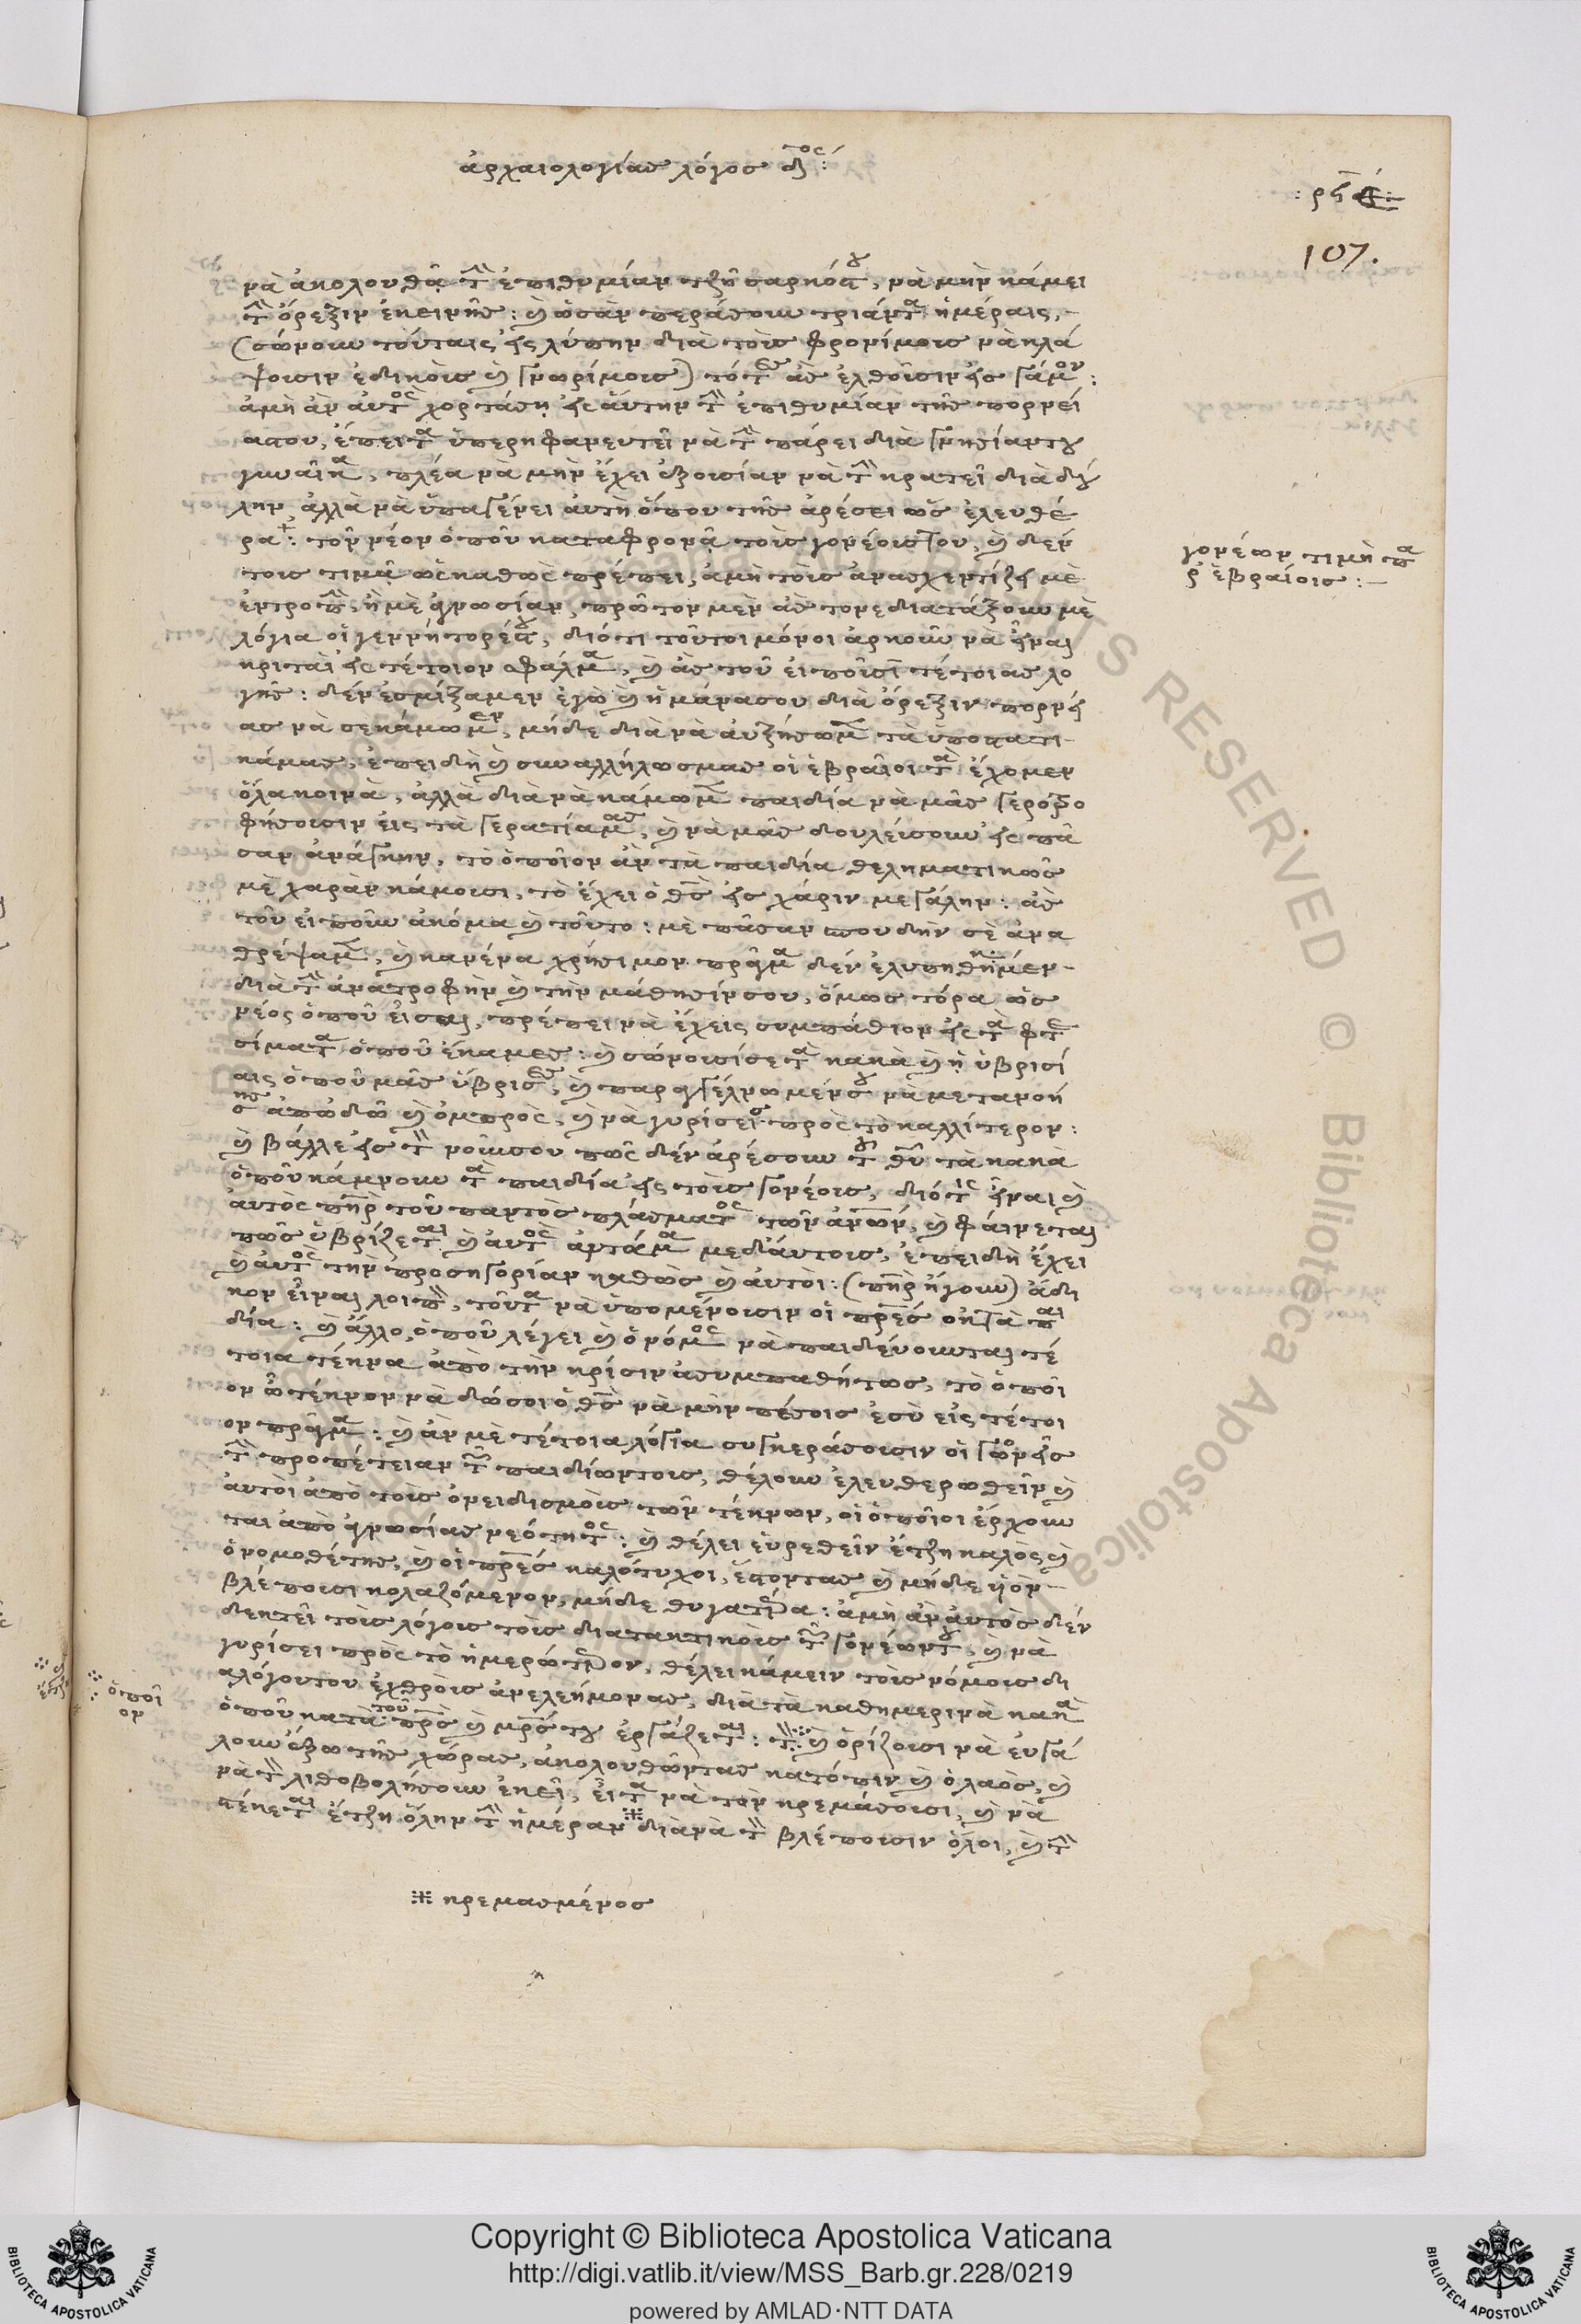 ἀρχαιολογίας λόγος δ^ος:
107.
νὰ ἀκολουθᾷ τὴν ἐπιθυμίαν τζῆ σαρκός του, νὰ μὴν κάμει
τὴν ὄρεξιν ἐκεινῆς: καὶ ὡσὰν περάσουν τριάντα ἡμέραις,
(σώνουν τούταις εἰς λύπην διὰ τοὺς φρονίμοις νὰ κλά
ψουσιν ἐδικοὺς καὶ γνωρίμοις) τότες ἂς ἐλθοῦσιν εἰς γάμον:
ἀμὴ ἂν αὐτὸς χορτάσῃ εἰς αὔτην τὴν ἐπιθυμίαν τῆς πορνεί
ας του, ἔπειτα ὑπερηφανευτεῖ νὰ τὴν πάρει διὰ γνησίαν του
γυναῖκα, πλέα νὰ μὴν ἔχει ἐξουσίαν νὰ τὴν κρατεῖ διὰ δού
λην, ἀλλὰ νὰ ὑπαγένει αὐτὴ ὅπου τῆς ἀρέσει ὡς ἐλευθέ
ρα: τὸν νέον ὁποῦ καταφρονᾷ τοὺς γονέους του, καὶ δὲν
τοὺς τιμᾷ ὡς καθὼς πρέπει, ἀμὴ τοὺς ἀνασχεντίζει μὲ
ἐντροπὴν, ἢ μὲ ἀγνωσίαν, πρῶτον μὲν ἂς τὸν ἐδιατάξουν μὲ
λόγια οἱ γεννήτορές του, διότι τοῦτοι μόνοι ἀρκοῦν νὰ εἶναι
κριταὶ εἰς τέτοιον σφάλμα, καὶ ἂς τοῦ εἰποῦσι τέτοιας λο
γῆς: δὲν ἐσμίξαμεν ἐγὼ καὶ ἡ μάνα σου διὰ ὄρεξιν πορνεί
ας νὰ σὲ κάμωμεν, μήδε διὰ νὰ αὐξήσωμεν τὰ ὑποστατι
κά μας, ἐπειδὴ καὶ συναλλήλως μας οἱ ἑβραῖοι τὰ ἔχομεν
ὅλα κοινὰ, ἀλλὰ διὰ νὰ κάμωμεν παιδία νὰ μᾶς γεροβο
θήσουσιν εἰς τὰ γερατία μας, καὶ νὰ μᾶς δουλεύσουν εἰς πᾶ
σαν ἀνάγκην, τὸ ὁποῖον ἂν τὰ παιδία θεληματικῶς
μὲ χαρὰν κάμουσι, τὸ ἔχει ὁ θεὸς εἰς χάριν μεγάλην: ἂς
τοῦ εἰποῦν ἀκόμα καὶ τοῦτο: μὲ πᾶσαν σπουδὴν σὲ ἀνα
θρέψαμεν, καὶ κανένα χρήσιμον πρᾶγμα δὲν ἐλυπηθήκαμεν
διὰ τὴν ἀνατροφὴν καὶ τὴν μάθησίν σου, ὅμως τόρα ὡς
νέος ὁποῦ εἶσαι, πρέπει νὰ ἔχεις συμπάθιον εἰς τὰ φται
σίματα ὁποῦ ἔκαμες: καὶ σώνουσί σε τὰ κακὰ καὶ ἡ ὑβρισί
αις ὁποῦ μᾶς ὕβρισες, καὶ παραγγέλνωμέν σου νὰ μετανοή
σῃς ἀπ' ὧδω καὶ ὀμπρὸς, καὶ νὰ γυρίσεις πρὸς τὸ καλλίτερον:
καὶ βάλλε εἰς τὸν νοῦν σου πῶς δὲν ἀρέσουν τοῦ θεοῦ τὰ κακὰ
ὁποῦ κάμνουν τὰ παιδία εἰς τοὺς γονέους, διότις εἶναι καὶ
αὐτὸς πατὴρ τοῦ παντὸς πλάσματος τῶν ἀνθρώπων, καὶ φαίνεται
πῶς ὑβρίζεται καὶ αὐτὸς ἀντάμα μεδ' αὐτοὺς, ἐπειδὴ ἔχει
καὶ αὐτὸς τὴν προσηγορίαν καθὼς καὶ αὐτοὶ: (πατὴρ ἤγουν) ἄδι
κον εἶναι λοιπὸν, τοῦτα νὰ ὑπομένουσιν οἱ πατέρες ἐκ τὰ παι
δία: καὶ ἄλλο, ὁποῦ λέγει καὶ ὁ νόμος νὰ παιδεύουνται τέ
τοια τέκνα ἀπὸ τὴν κρίσιν ἀσυμπαθήτως, τὸ ὁποῖ
ον ὦ τέκνον νὰ δώσοι ὁ θεὸς νὰ μὴν πέσοις ἐσὺ εἰς τέτοι
ον πρᾶγμα: καὶ ἂν μὲ τέτοια λόγια συγκεράσουσιν οἱ γονεῖς
τὴν προπέτειαν τῶν παιδίων τους, θέλουν ἐλευθερωθεῖν καὶ
αὐτοὶ ἀπὸ τοὺς ὀνειδισμοὺς τῶν τέκνων, οἱ ὁποῖοι ἔρχουν
ται ἀπὸ ἀγνωσίας νεότητος: καὶ θέλει εὑρεθεῖν ἔτζη καλὸς καὶ
ὁ νομοθέτης, καὶ οἱ πατέρες καλότυχοι, ἔστοντας καὶ μήδε ὑὸν
βλέπουσι κολαζόμενον, μήδε θυγατέρα: ἀμὴ ἂν αὐτὸς δὲν
δεκτεῖ τοὺς λόγους τοὺς διατακτικοὺς τῶν γονέων του, καὶ νὰ
γυρίσει πρὸς τὸ ἡμερώτερον, θέλει κάμειν τοὺς νόμους δι
αλόγου του ἐχθροὺς ἀνελεήμονας, διὰ τὰ καθημερινὰ κακὰ
ὁποῦ κατὰ τοῦ πατρὸς καὶ μητρός του ἐργάζεται: καὶ ὁρίζουσι νὰ εὐγά
λουν ἔξω τῆς χώρας, ἀκολουθῶντας κατόπιν καὶ ὁ λαὸς, καὶ
νὰ τὸν λιθοβολήσουν ἐκεῖ, εἶτα νὰ τὸν κρεμάσουσι, καὶ νὰ
στέκεται ἔτζη ὅλην τὴν ἡμέραν διὰ νὰ τὸν βλέπουσιν ὅλοι, καὶ τὴν
κρεμασμένος
γονέων τιμὴ πα
ρ' ἑβραίοις:
ὁποῖ
ον
Copyright © Biblioteca Apostolica Vaticana
http://digi.vatlib.it/view/MSS_Barb.gr.228/0219
powered by AMLAD·NTT DATA
BIBLIOTECA APOSTOLICA VATICANA
BIBLIOTECA APOSTOLICA VATICANA